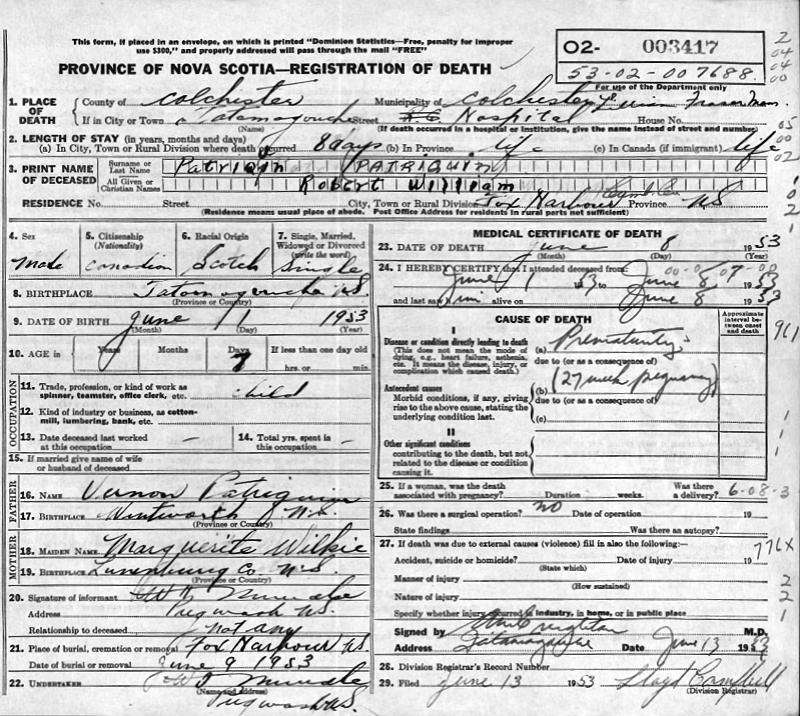 This form, if placed in an envelope, on which is printed "Dominion Statistics—Free, penalty for improper
use $300," and properly addressed will pass through the mail "FREE"
PROVINCE OF NOVA SCOTIA—REGISTRATION OF DEATH
O2- 003417
53-02-007688
For use of the Department only
2
04
04
00
1. PLACE OF DEATH
County of Colchester Municipality of Colchester
If in City or Town Tatamagouche Street Hospital House No.
(Name) (If death occurred in a hospital or institution, give the name instead of street and number)
05
2. LENGTH OF STAY (in years, months and days)
00
(a) In City, Town or Rural Division where death occurred 8 days (b) In Province life (c) In Canada (if immigrant) life
02
3. PRINT NAME OF DECEASED
Surname or Last Name Patriquin PATRIQUIN
All Given or Christian Names Robert William
RESIDENCE No. Street City, Town or Rural Division Fox Harbour Province NS
(Residence means usual place of abode. Post Office Address for residents in rural parts not sufficient)
1
0
2
1
4. Sex Male
5. Citizenship (Nationality) Canadian
6. Racial Origin Scotch
7. Single, Married, Widowed or Divorced (write the word) Single
8. BIRTHPLACE Tatamagouche N.S.
(Province or Country)
9. DATE OF BIRTH June 1 1953
(Month) (Day) (Year)
10. AGE in Years Months Days 7 If less than one day old
hrs. or min.
OCCUPATION
11. Trade, profession, or kind of work as spinner, teamster, office clerk, etc. child
12. Kind of industry or business, as cotton-mill, lumbering, bank, etc.
13. Date deceased last worked at this occupation —
14. Total yrs. spent in this occupation —
15. If married give name of wife or husband of deceased
FATHER
16. NAME Vernon Patriquin
17. BIRTHPLACE Wentworth N.S.
(Province or Country)
MOTHER
18. MAIDEN NAME Marguerite Wilkie
19. BIRTHPLACE Lunenburg Co. N.S.
(Province or Country)
20. Signature of informant
Address Pugwash NS.
Relationship to deceased not any
21. Place of burial, cremation or removal Fox Harbour NS
Date of burial or removal June 9 1953
22. UNDERTAKER
(Name and address)
Pugwash NS.
MEDICAL CERTIFICATE OF DEATH
23. DATE OF DEATH June 8 1953
(Month) (Day) (Year)
24. I HEREBY CERTIFY that I attended deceased from:
June 1 1953 to June 8 1953
and last saw him alive on June 8 1953
CAUSE OF DEATH
Approximate interval between onset and death
I
Disease or condition directly leading to death
(This does not mean the mode of dying, e.g., heart failure, asthenia, etc. It means the disease, injury, or complication which caused death.)
(a) Prematurity
due to (or as a consequence of)
Antecedent causes
Morbid conditions, if any, giving rise to the above cause, stating the underlying condition last.
(b) (27 week pregnancy)
due to (or as a consequence of)
(c)
II
Other significant conditions
contributing to the death, but not related to the disease or condition causing it.
961
1
1
1
25. If a woman, was the death associated with pregnancy? Duration weeks. Was there a delivery?
6-08-3
26. Was there a surgical operation? NO Date of operation 19
State findings Was there an autopsy?
27. If death was due to external causes (violence) fill in also the following:—
776x
Accident, suicide or homicide? Date of injury 19
(State which)
Manner of injury
(How sustained)
2
Nature of injury
2
Specify whether injury occurred in industry, in home, or in public place
1
Signed by M.D.
Address Tatamagouche Date June 13 1953
28. Division Registrar's Record Number
29. Filed June 13 1953 Lloyd Campbell
(Division Registrar)